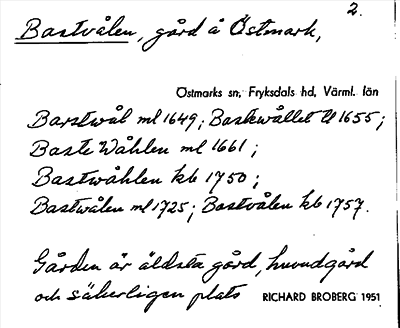 2.
Bastvålen, gård å Östmark,
Östmarks sn, Fryksdals hd, Värml. län
Barstwål ml 1649; Baskwållet U 1655;
Baste Wåhlen ml 1661;
Bastwåhlen kb 1750;
Bastwålen ml 1725; Bastvålen kb 1757.
Gården är äldsta gård, huvudgård
och säkerligen plats RICHARD BROBERG 1951